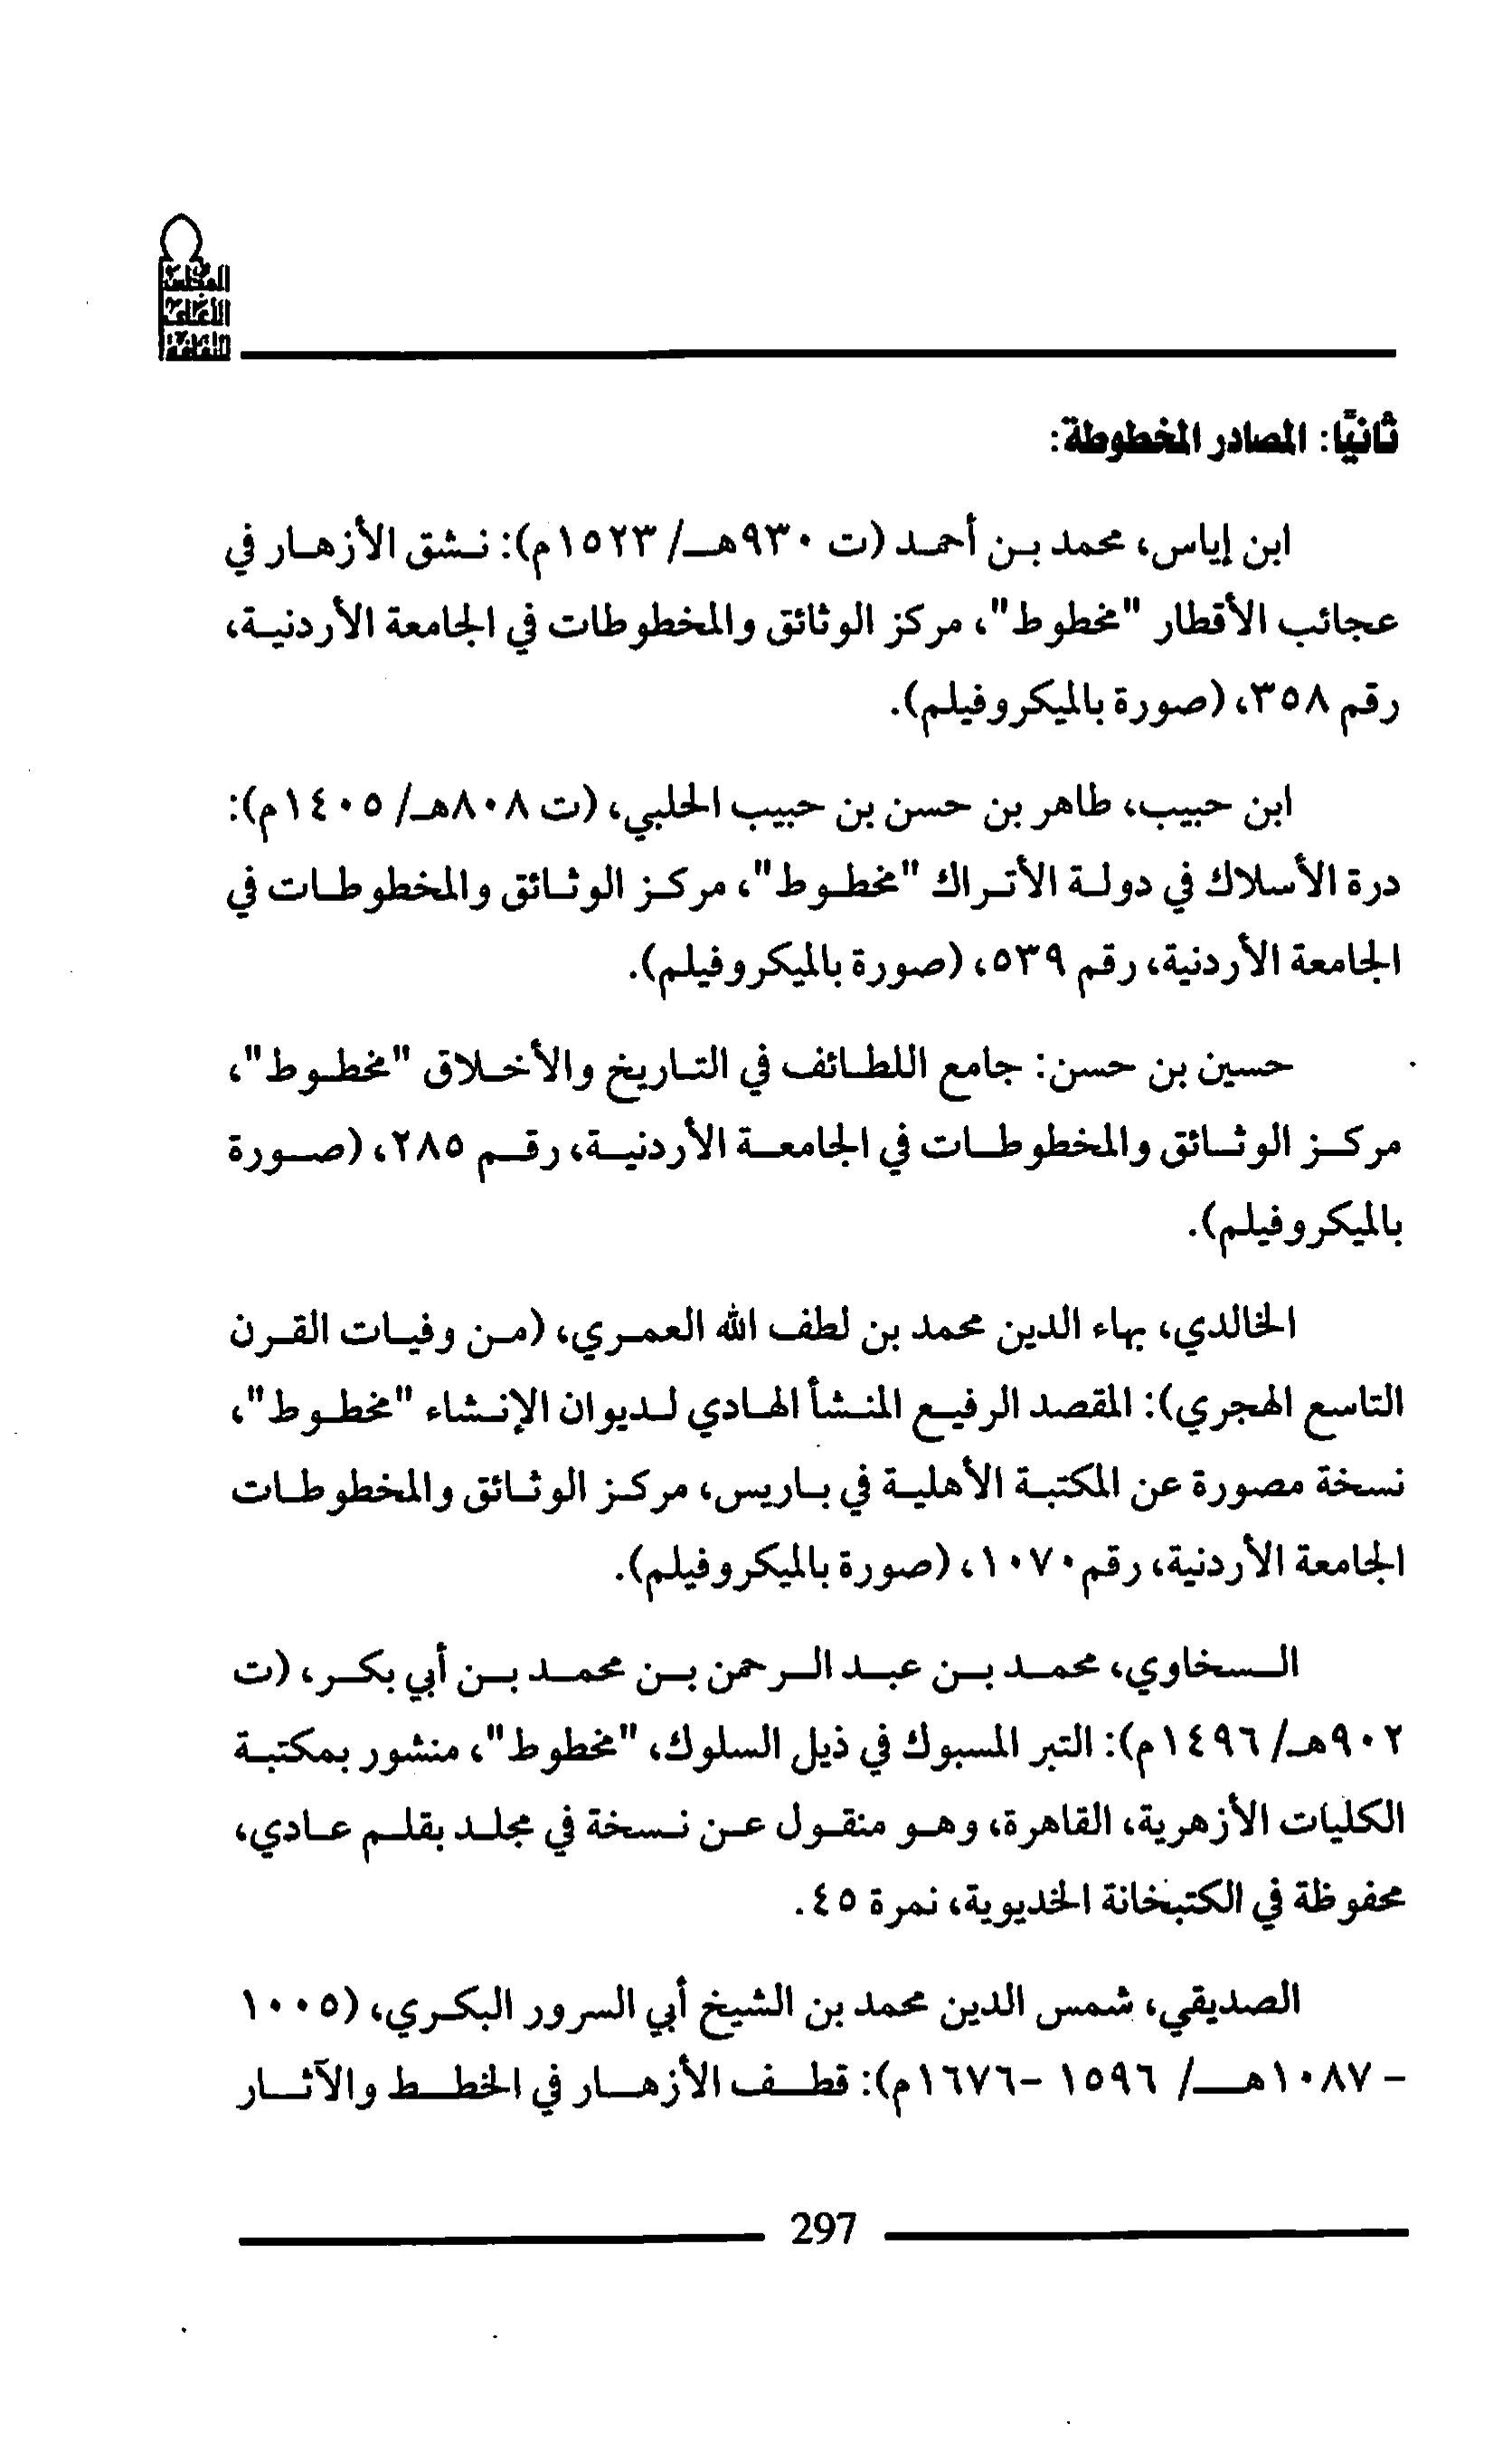 المجلس
الأعلى
للثقافة
ثانيًا: المصادر المخطوطة:
ابن إياس، محمد بن أحمد (ت ٩٣٠هـ/ ١٥٢٣م): نشق الأزهار في
عجائب الأقطار "مخطوط"، مركز الوثائق والمخطوطات في الجامعة الأردنية،
رقم ٣٥٨، (صورة بالميكروفيلم).
ابن حبيب، طاهر بن حسن بن حبيب الحلبي، (ت ٨٠٨هـ/ ١٤٠٥م):
درة الأسلاك في دولة الأتراك "مخطوط"، مركز الوثائق والمخطوطات في
الجامعة الأردنية، رقم ٥٣٩، (صورة بالميكروفيلم).
حسين بن حسن: جامع اللطائف في التاريخ والأخلاق "مخطوط"،
مركز الوثائق والمخطوطات في الجامعة الأردنية، رقم ٢٨٥، (صورة
بالميكروفيلم).
الخالدي، بهاء الدين محمد بن لطف الله العمري، (من وفيات القرن
التاسع الهجري): المقصد الرفيع المنشأ الهادي لديوان الإنشاء "مخطوط"،
نسخة مصورة عن المكتبة الأهلية في باريس، مركز الوثائق والمخطوطات
الجامعة الأردنية، رقم ١٠٧٠، (صورة بالميكروفيلم).
السخاوي، محمد بن عبد الرحمن بن محمد بن أبي بكر، (ت
٩٠٢هـ/ ١٤٩٦م): التبر المسبوك في ذيل السلوك، "مخطوط"، منشور بمكتبة
الكليات الأزهرية، القاهرة، وهو منقول عن نسخة في مجلد بقلم عادي،
محفوظة في الكتبخانة الخديوية، نمرة ٤٥.
الصديقي، شمس الدين محمد بن الشيخ أبي السرور البكري، (١٠٠٥
- ١٠٨٧هـ/ ١٥٩٦ -١٦٧٦م): قطف الأزهار في الخطط والآثار
297